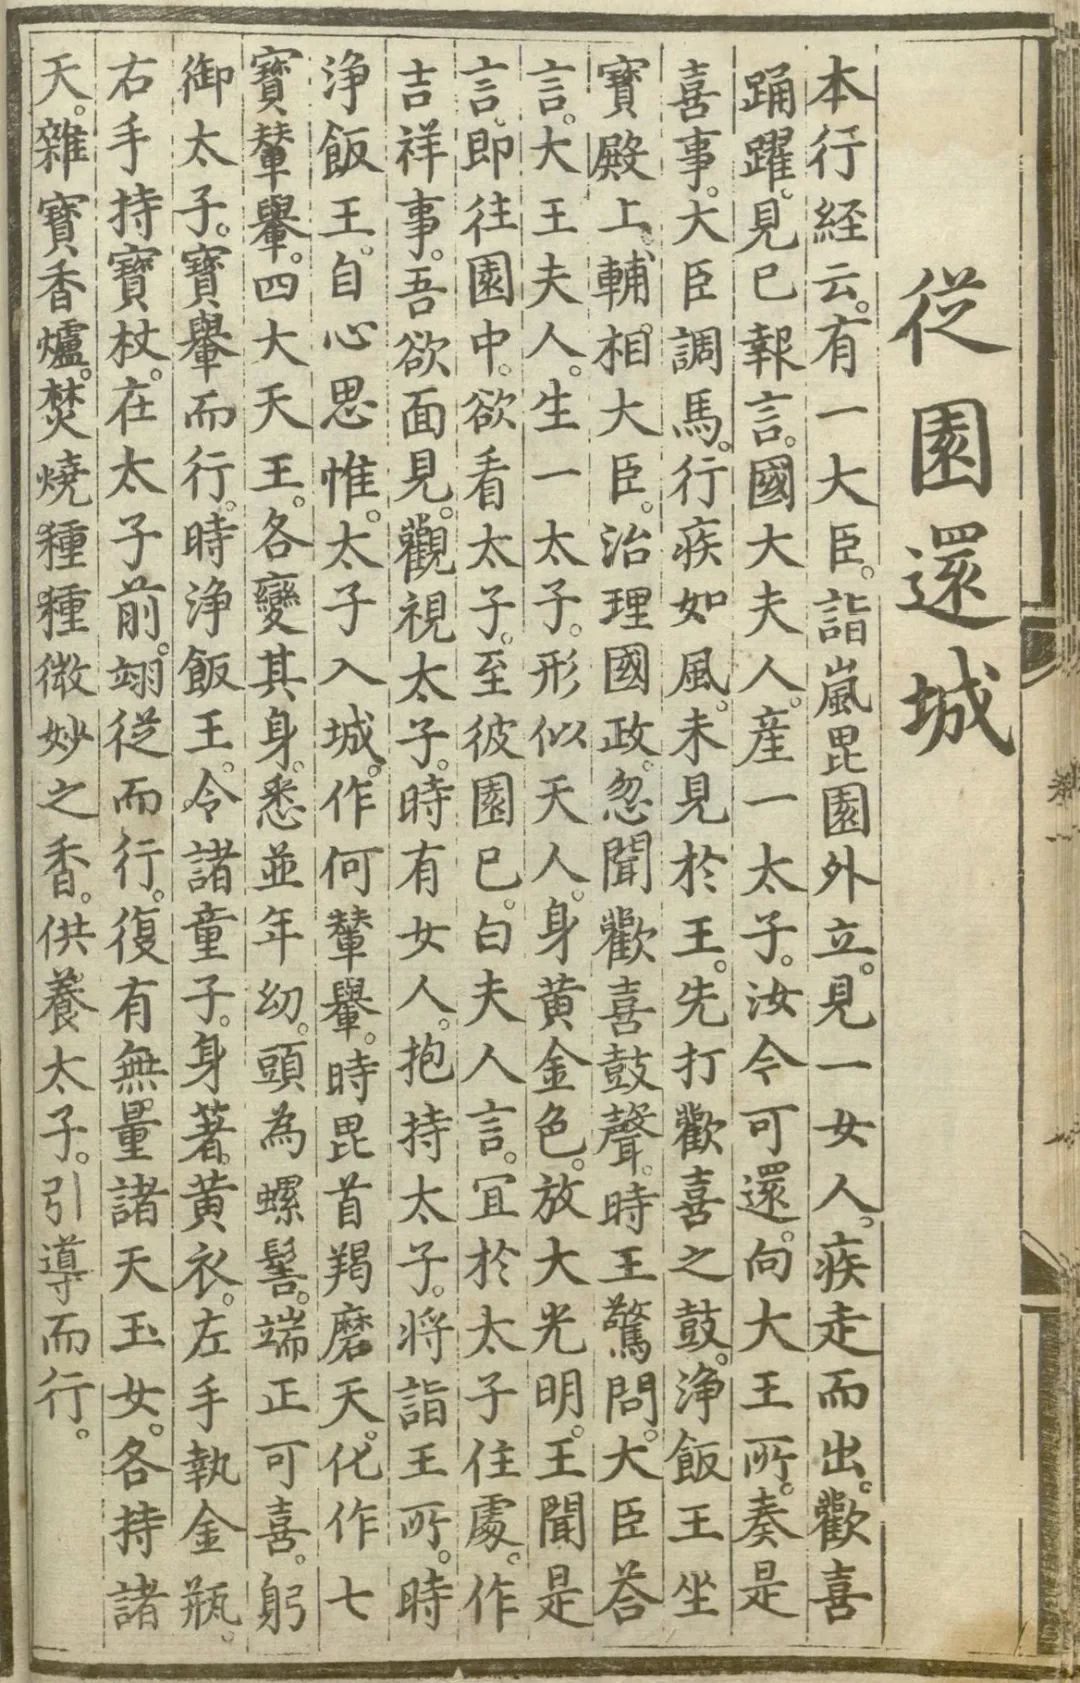 從園還城
本行経云。有一大臣。詣嵐毘園外立。見一女人。疾走而出。歡喜
踊躍。見已報言。國大夫人。産一太子。汝今可還。向大王所。奏是
喜事。大臣調馬。行疾如風。未見於王。先打歡喜之鼓。浄飯王坐
寶殿上、輔相大臣。治理國政。忽聞歡喜鼓聲。時王驚問。大臣荅
言。大王夫人。生一太子。形似天人。身黄金色。放大光明。王聞是
言。即往園中。欲看太子。至彼園已。白夫人言。冝於太子住處。作
吉祥事。吾欲面見。觀視太子。時有女人。抱持太子。将詣王所。時
浄飯王。自心思惟。太子入城。作何輦轝。時毘首羯磨天。化作七
寶輦轝。四大天王。各變其身。悉並年幼。頭為螺髻。端正可喜。躬
御太子。寶轝而行。時浄飯王。令諸童子。身著黄衣。左手執金瓶。
右手持寶杖。在太子前。翊從而行。復有無量諸天玉女。各持諸
天。雜寶香爐。焚燒種種微妙之香。供養太子。引導而行。